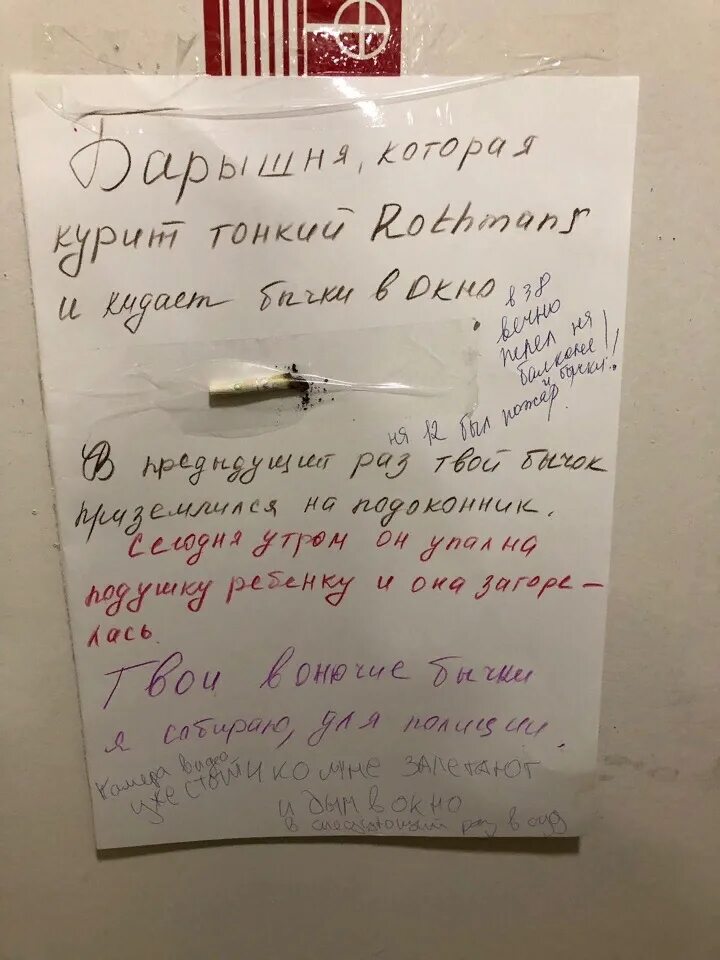 Барышня, которая
курит тонкий Rothmans
и кидает бычки в окно
в 38
вечно
пепел на
балконе!
и бычки!
на 12 был пожар
В предыдущий раз твой бычок
приземлился на подоконник.
Сегодня утром он упал на
подушку ребенку и она загоре-
лась.
Твои вонючие бычки
я собираю, для полиции.
Камера видео
уже стоит
И КО МНЕ ЗАЛЕТАЮТ
И ДЫМ В ОКНО
в следующий раз в суд